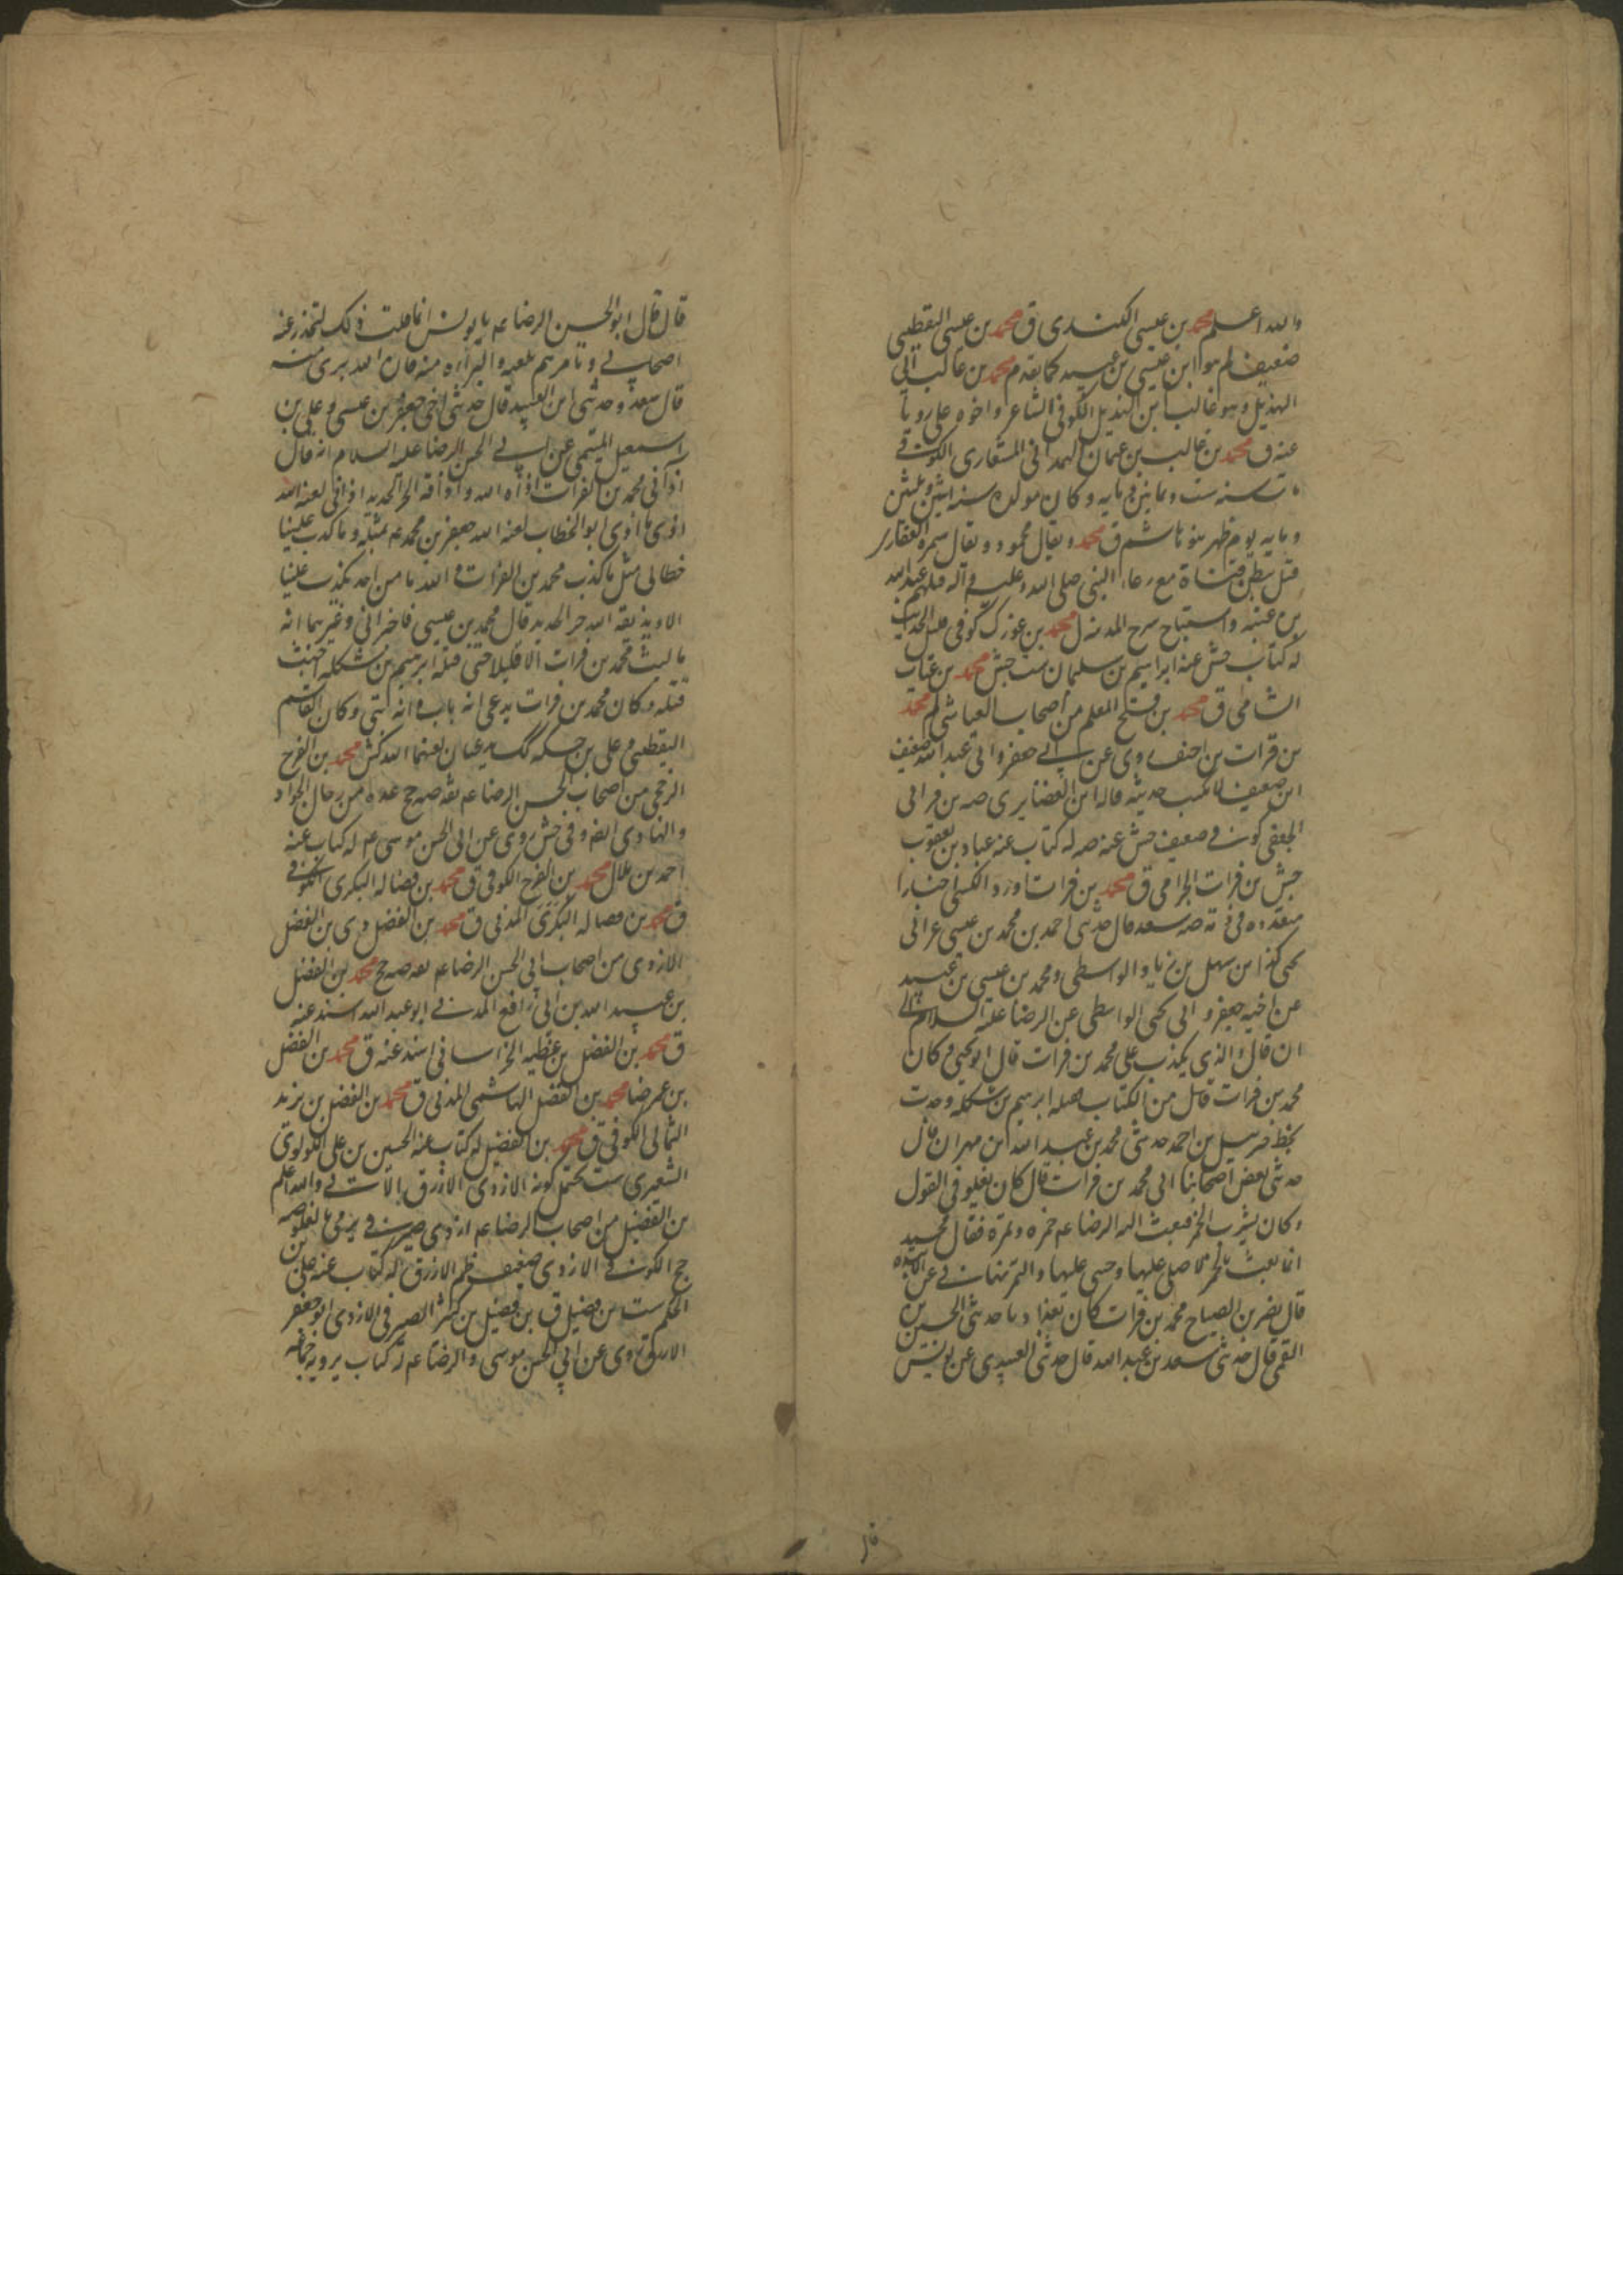 والله اعلم محمد بن عيسى الكندى ق محمد بن عيسى اليقطينى
ضعيف لم هو ابن عيسى بن عبيد كما تقدم محمد بن غالب ابى
الهذيل وهو غالب ابن الهذيل الكوفى الشاعر واخوه على رويا
عنه ق محمد بن غالب بن عثمان الهمدانى المشعارى الكوفى
مات سنه ست وثمانين ومايه وكان مولده سنه اثنين وثلثين
ومايه يوم ظهر بنو هاشم ق محمد ويقال محمود ويقال سمره الغفارى
قتل ببطن قناة مع رعاء النبى صلى الله عليه وآله قتلهم عبدالله
بن عتبه واستباح سرح المدينه ل محمد بن غورك كوفى قليل الحديث
له كتاب جش عنه ابراهيم بن سليمان ست جش محمد بن غياث
الشامى ق محمد بن فتح المعلم من اصحاب العياشى لم محمد
بن فرات بن احنف روى عن ابى جعفر وابى عبد الله ضعيف
ابن ضعيف لا يكتب حديثه قاله ابن الغضايرى صه بن فرات
الجعفى كوفى ضعيف جش عنه صه له كتاب عنه عباد بن يعقوب
جش بن فرات الجرامى ق محمد بن فرات اورد الكشى اخبارا
متعدده فى ذمه صه سعد قال حدثنى احمد بن محمد بن عيسى عن ابى
يحيى كذا بن سهيل بن زياد الواسطى ومحمد بن عيسى بن عبيد
عن اخيه جعفر وابى يحيى الواسطى عن الرضا عليه السلام الى
ان قال والذى يكذب على محمد بن فرات قال ابو يحيى وكان
محمد بن فرات من الكتاب فقتله ابرهيم بن شكله وجدت
بخط جبريل بن احمد حدثنى محمد بن عبد الله ابن مهران قال
حدثنى بعض اصحابنا ابى محمد بن فرات قال كان يغلو فى القول
وكان يشرب الخمر فبعث اليه الرضا عم خمره وتمرة فقال محمد
انما بعث بالخمرة لاصلى عليها وحثنى عليها والتمر نهانى عن الانبذه
قال نصر بن الصباح محمد بن فرات كان بغداديا حدثنى الحسين بن
القمى قال حدثنى سعد بن عبد الله قال حدثنى العبيدى عن يونس
قال
قال قال ابو الحسن الرضا عم يا يونس انما قلت ذلك لتحذر عنه
اصحابى وتامرهم بلعنه والبراءه منه فان الله برى منه
قال سعد وحدثنى ابن العبيد قال حدثنى اخى جعفر بن عيسى وعلى بن
اسمعيل الميثمى عن ابى الحسن الرضا عليه السلام انه قال
آذانى محمد بن الفرات آذاه الله واذاقه الحر الحديد آذانى لعنه الله
اذى ما آذى ابو الخطاب لعنه الله جعفر بن محمد عم بمثله وما كذب علينا
خطابى مثل ما كذب محمد بن الفرات والله ما من احد يكذب علينا
الا ويذيقه الله حر الحديد قال محمد بن عيسى فاخبرانى وغيرهما انه
ما لبث محمد بن فرات الا قليلا حتى قتله ابرهيم بن شكله اخبث
قتله وكان محمد بن فرات يدعى انه باب وانه نبى وكان القسم
اليقطينى وعلى بن حسكه كك يدعيان لعنهما الله كش محمد بن الفرج
الرخجى من اصحاب ابى الحسن الرضا عم ثقه صه جخ عده من رجال الجواد
والهادى ايضا وفى جش روى عن ابى الحسن موسى عم له كتاب عنه
احمد بن هلال محمد بن الفرج الكوفى ق محمد بن فضاله البكرى الكوفى
ق محمد بن فضاله البكرى المدنى ق محمد بن الفضل دى بن الفضل
الازدى من اصحاب ابى الحسن الرضا عم ثقه صه جخ محمد بن الفضل
بن عبيد الله بن ابى رافع المدنى ابو عبد الله اسند عنه
ق محمد بن الفضل بن عطيه الخراسانى اسند عنه ق محمد بن الفضل
بن عمر ضا محمد بن الفضل الهاشمى المدنى ق محمد بن الفضل بن يزيد
الثمالى الكوفى ق محمد بن الفضيل له كتاب عنه الحسين بن على اللولوى
الشعيرى ست يحتمل كونه الازدى الازرق الآتى والله اعلم
بن الفضيل من اصحاب الرضا عم ازدى صيرفى يرمى بالغلو صه
جخ الكوفى الازدى ضعيف ظم الازرق له كتاب عنه على بن
الحكم ست بن فضيل ق بن فضيل بن كثير الصيرفى الازدى ابو جعفر
الازرق روى عن ابى الحسن موسى والرضا عم له كتاب يرويه جماعه